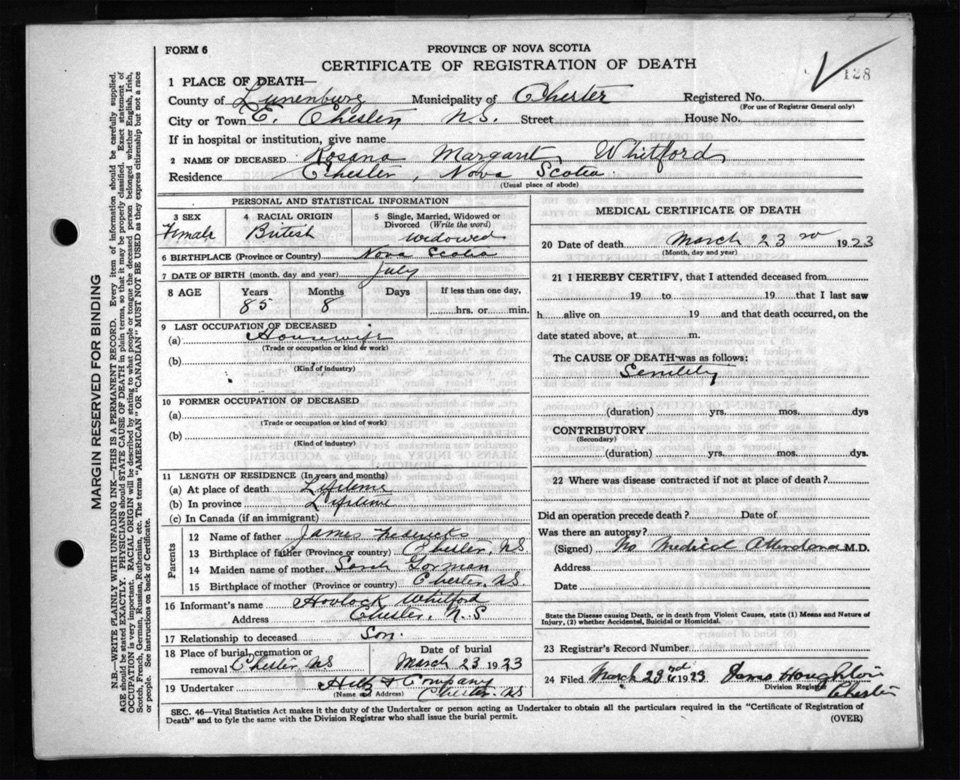 FORM 6
PROVINCE OF NOVA SCOTIA
CERTIFICATE OF REGISTRATION OF DEATH
128
1 PLACE OF DEATH—
County of Lunenburg Municipality of Chester Registered No.
(For use of Registrar General only)
City or Town E. Chester N.S. Street House No.
If in hospital or institution, give name
2 NAME OF DECEASED Rosena Margaret Whitford
Residence Chester, Nova Scotia
(Usual place of abode)
PERSONAL AND STATISTICAL INFORMATION
3 SEX Female
4 RACIAL ORIGIN British
5 Single, Married, Widowed or Divorced (Write the word) Widowed
6 BIRTHPLACE (Province or Country) Nova Scotia
7 DATE OF BIRTH (month, day and year) July
8 AGE Years Months Days If less than one day,
85 8 hrs. or min.
9 LAST OCCUPATION OF DECEASED
(a) Housewife
(Trade or occupation or kind of work)
(b)
(Kind of industry)
10 FORMER OCCUPATION OF DECEASED
(a)
(Trade or occupation or kind of work)
(b)
(Kind of industry)
11 LENGTH OF RESIDENCE (In years and months)
(a) At place of death Lifetime
(b) In province Lifetime
(c) In Canada (if an immigrant)
Parents
12 Name of father James
13 Birthplace of father (Province or country) Chester, N.S.
14 Maiden name of mother Sarah Gorman
15 Birthplace of mother (Province or country) Chester, N.S.
16 Informant's name Hovlock Whitford
Address Chester, N.S
17 Relationship to deceased Son.
18 Place of burial, cremation or removal Chester NS
Date of burial March 23 1923
19 Undertaker & Company
(Name and Address) Chester, N.S
MEDICAL CERTIFICATE OF DEATH
20 Date of death March 23 rd 1923
(Month, day and year)
21 I HEREBY CERTIFY, that I attended deceased from
19 to 19 that I last saw
h alive on 19 and that death occurred, on
date stated above, at m.
The CAUSE OF DEATH was as follows:
Senility
(duration) yrs. mos. dys
CONTRIBUTORY
(Secondary)
(duration) yrs. mos. dys.
22 Where was disease contracted if not at place of death?
Did an operation precede death? Date of
Was there an autopsy?
(Signed) No Medical Attendance M.D.
Address
Date
State the Disease causing Death, or in death from Violent Causes, state (1) Means and Nature of
Injury, (2) whether Accidental, Suicidal or Homicidal.
23 Registrar's Record Number
24 Filed March 23rd 1923 James Houghton
Division Registrar
Chester
SEC. 46—Vital Statistics Act makes it the duty of the Undertaker or person acting as Undertaker to obtain all the particulars required in the "Certificate of Registration of
Death" and to fyle the same with the Division Registrar who shall issue the burial permit.
(OVER)
MARGIN RESERVED FOR BINDING
N.B.—WRITE PLAINLY WITH UNFADING INK—THIS IS A PERMANENT RECORD. Every item of information should be carefully supplied.
AGE should be stated EXACTLY. PHYSICIANS should STATE CAUSE OF DEATH in plain terms, so that it may be properly classified. Exact statement of
OCCUPATION is very important. RACIAL ORIGIN will be described by stating to what people or tongue the deceased person belonged whether English, Irish,
Scotch, French, German, Russian, Ruthenian, etc. The terms "AMERICAN" OR "CANADIAN" MUST NOT BE USED as they express citizenship but not a race
or people. See instructions on back of Certificate.